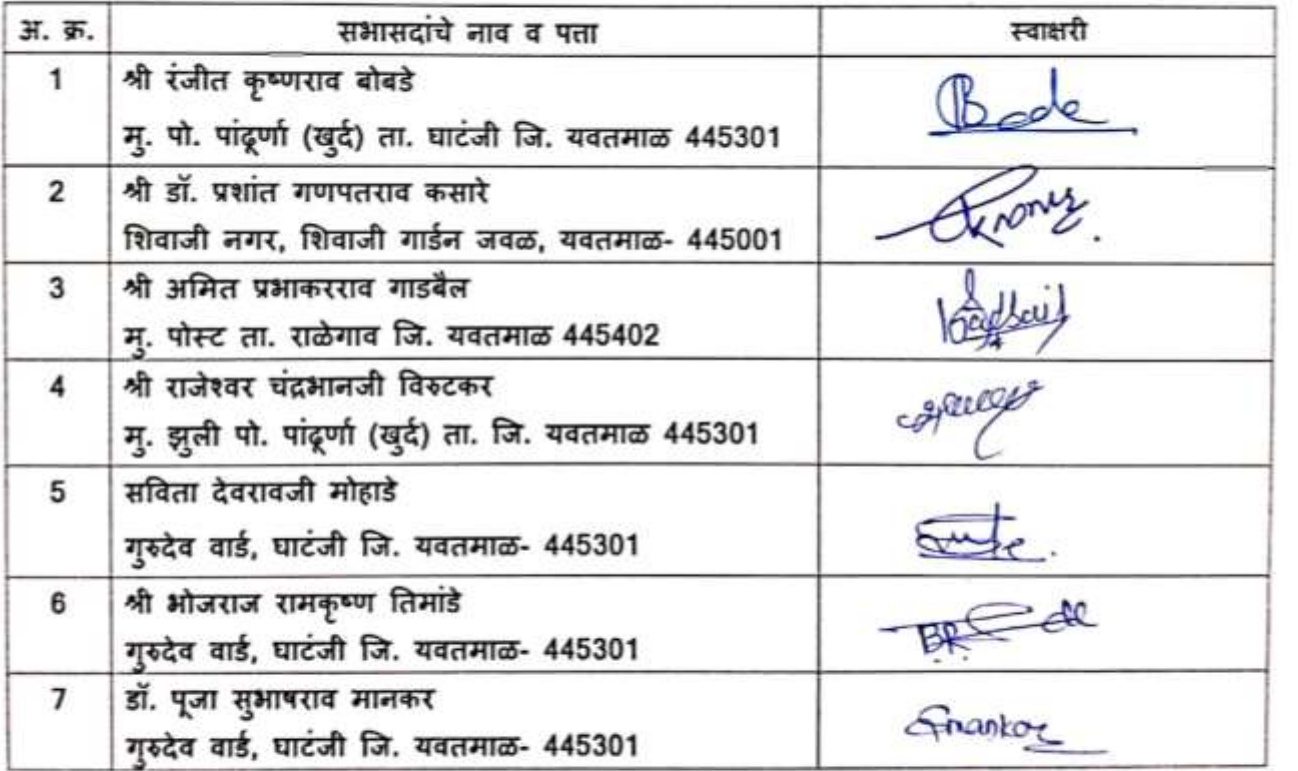 अ. क्र. सभासदांचे नाव व पत्ता स्वाक्षरी
1 श्री रंजीत कृष्णराव बोबडे
मु. पो. पांढूर्णा (खुर्द) ता. घाटंजी जि. यवतमाळ 445301
2 श्री डॉ. प्रशांत गणपतराव कसारे
शिवाजी नगर, शिवाजी गार्डन जवळ, यवतमाळ- 445001
3 श्री अमित प्रभाकरराव गाडबैल
मु. पोस्ट ता. राळेगाव जि. यवतमाळ 445402
4 श्री राजेश्वर चंद्रभानजी विरुटकर
मु. झुली पो. पांढूर्णा (खुर्द) ता. जि. यवतमाळ 445301
5 सविता देवरावजी मोहाडे
गुरुदेव वार्ड, घाटंजी जि. यवतमाळ- 445301
6 श्री भोजराज रामकृष्ण तिमांडे
गुरुदेव वार्ड, घाटंजी जि. यवतमाळ- 445301
7 डॉ. पूजा सुभाषराव मानकर
गुरुदेव वार्ड, घाटंजी जि. यवतमाळ- 445301